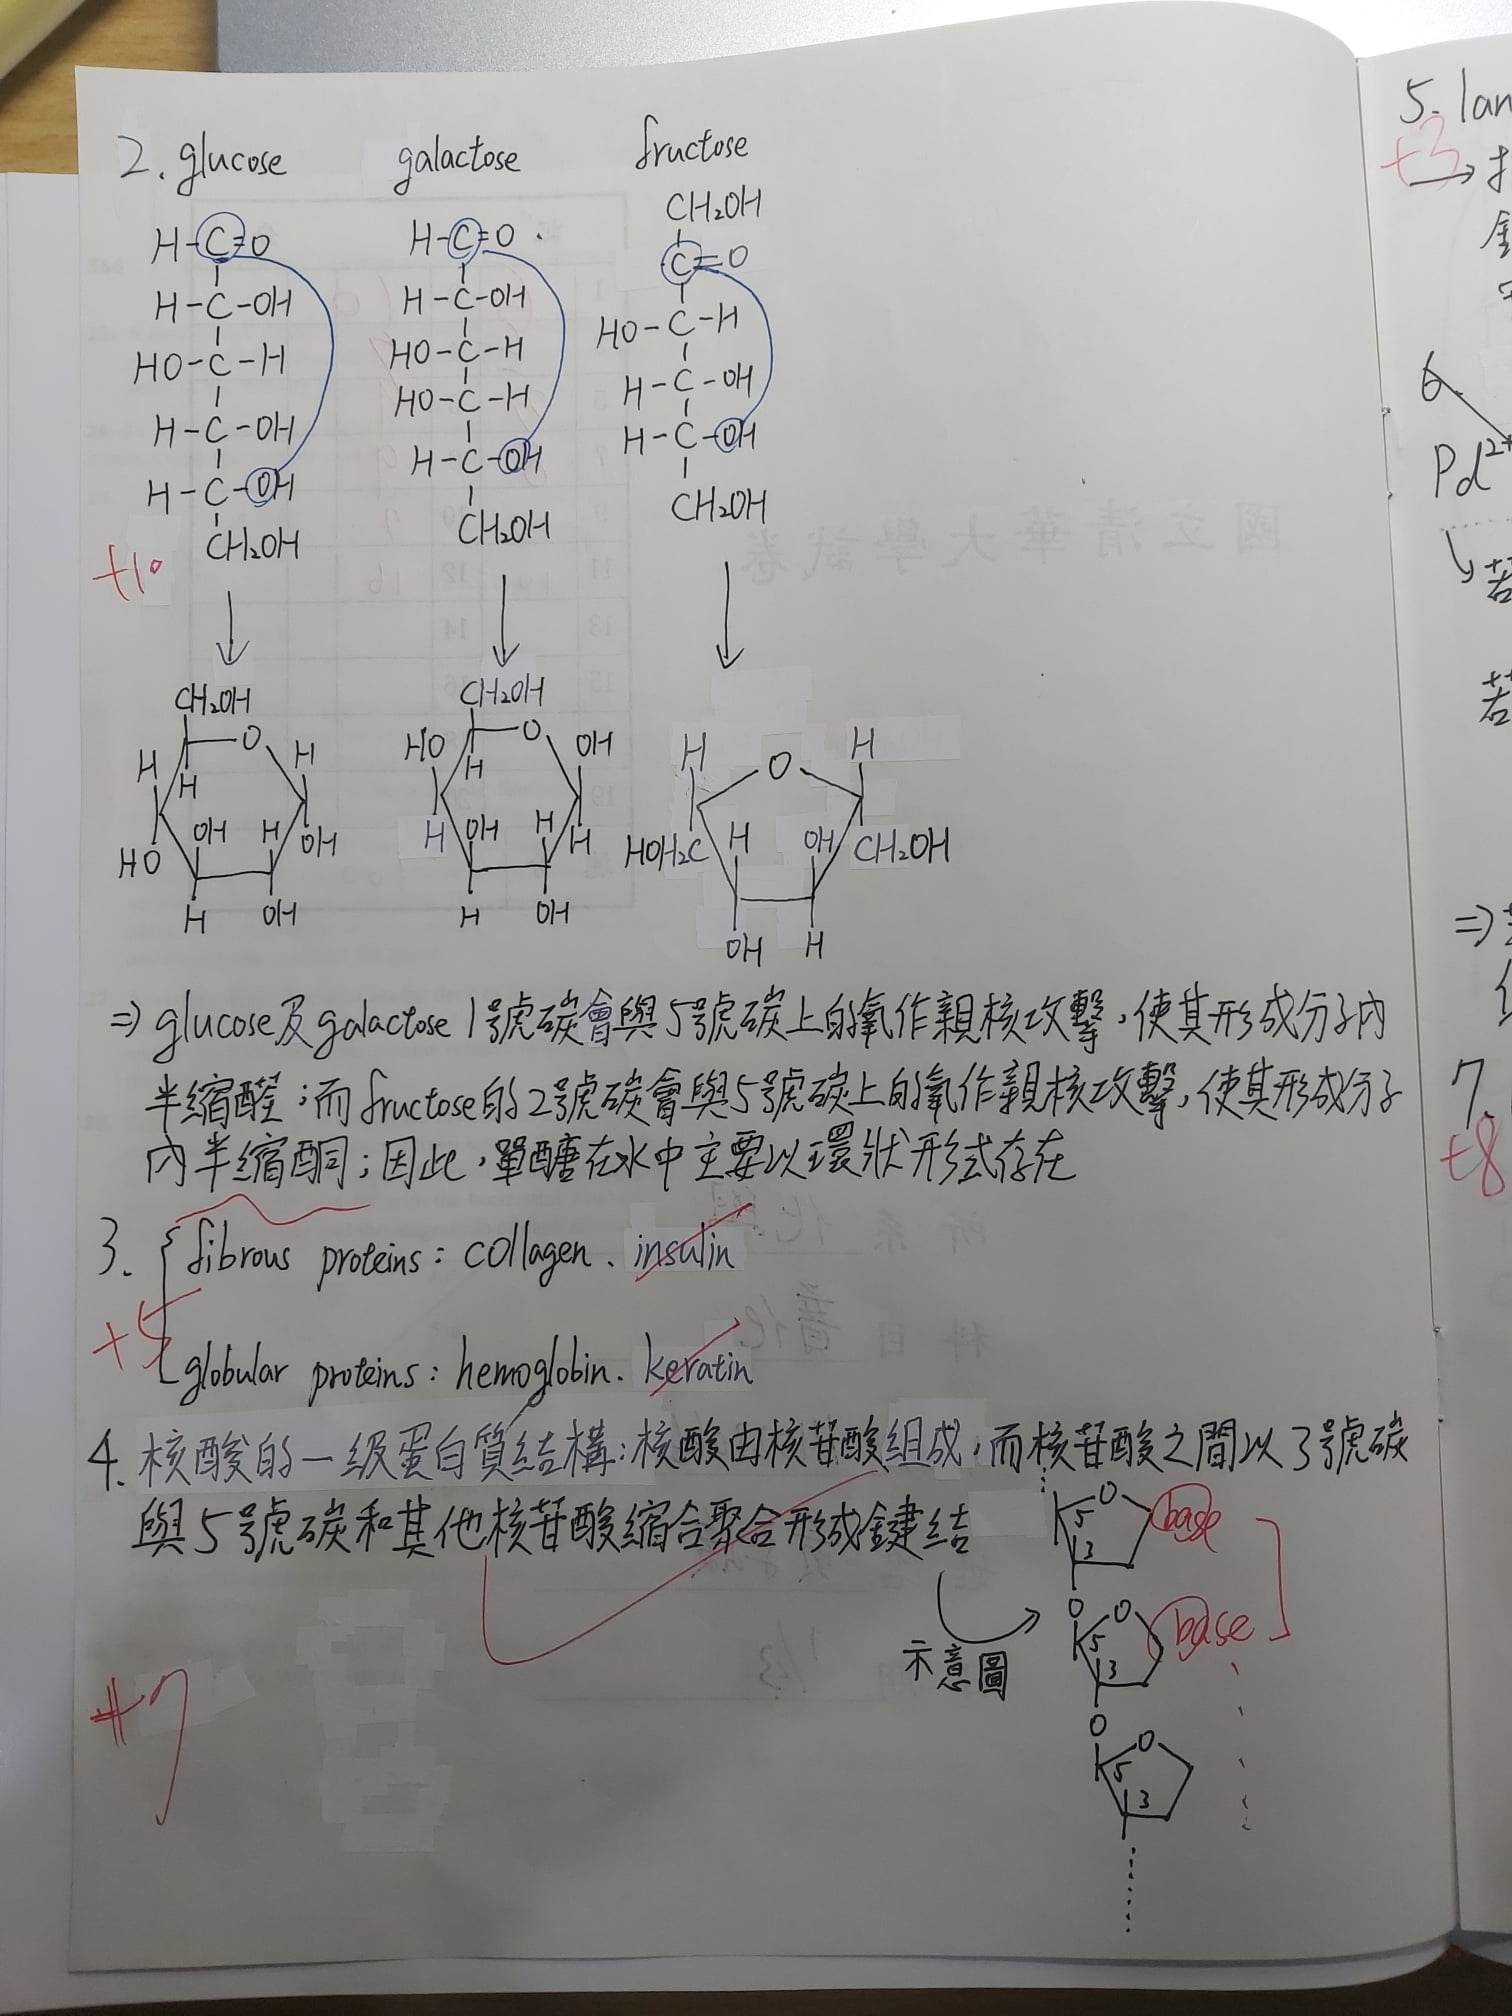 2. glucose galactose fructose
CH₂OH
H-C=O H-C=O C=O
H-C-OH H-C-OH HO-C-H
HO-C-H HO-C-H H-C-OH
H-C-OH HO-C-H H-C-OH
H-C-OH H-C-OH CH₂OH
CH₂OH CH₂OH
+10
CH₂OH CH₂OH
O H HO O OH H O H
H H H
OH H OH H OH H H H OH
HO HOH₂C CH₂OH
H OH H OH OH H
⇒ glucose及galactose 1號碳會與5號碳上的氧作親核攻擊,使其形成分子內
半縮醛;而fructose的2號碳會與5號碳上的氧作親核攻擊,使其形成分子
內半縮酮;因此,單醣在水中主要以環狀形式存在
3. fibrous proteins: collagen、insulin
+5
globular proteins: hemoglobin、keratin
4. 核酸的一級蛋白質結構:核酸由核苷酸組成,而核苷酸之間以3號碳
與5號碳和其他核苷酸縮合聚合形成鍵結
示意圖
O base
5 3
O O base
5 3
O O
5 3
+7
5. lan
+3
6.
Pd²⁺
若
若
⇒
7.
+8
國立清華大學試卷